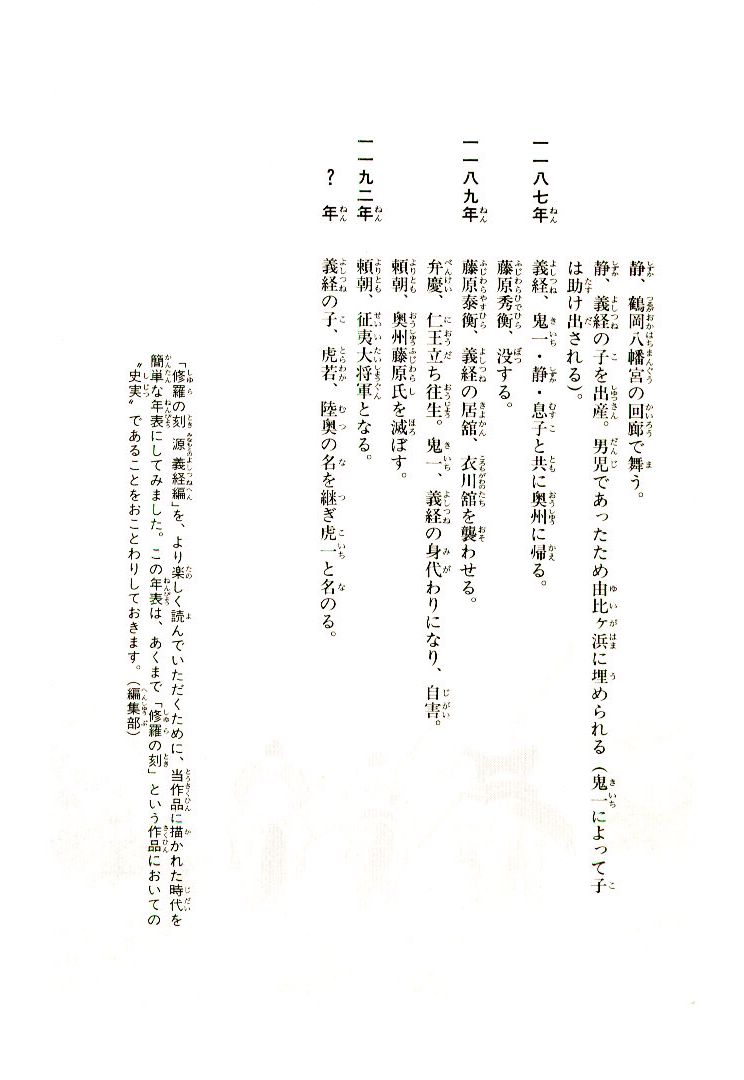 静、鶴岡八幡宮の回廊で舞う。
静、義経の子を出産。男児であったため由比ヶ浜に埋められる（鬼一によって子
は助け出される）。
一一八七年　義経、鬼一・静・息子と共に奥州に帰る。
藤原秀衡、没する。
一一八九年　藤原泰衡、義経の居舘、衣川舘を襲わせる。
弁慶、仁王立ち往生。鬼一、義経の身代わりになり、自害。
頼朝、奥州藤原氏を滅ぼす。
一一九二年　頼朝、征夷大将軍となる。
？　年　義経の子、虎若、陸奥の名を継ぎ虎一と名のる。
「修羅の刻　源　義経編」を、より楽しく読んでいただくために、当作品に描かれた時代を
簡単な年表にしてみました。この年表は、あくまで「修羅の刻」という作品においての
〝史実〟であることをおことわりしておきます。（編集部）